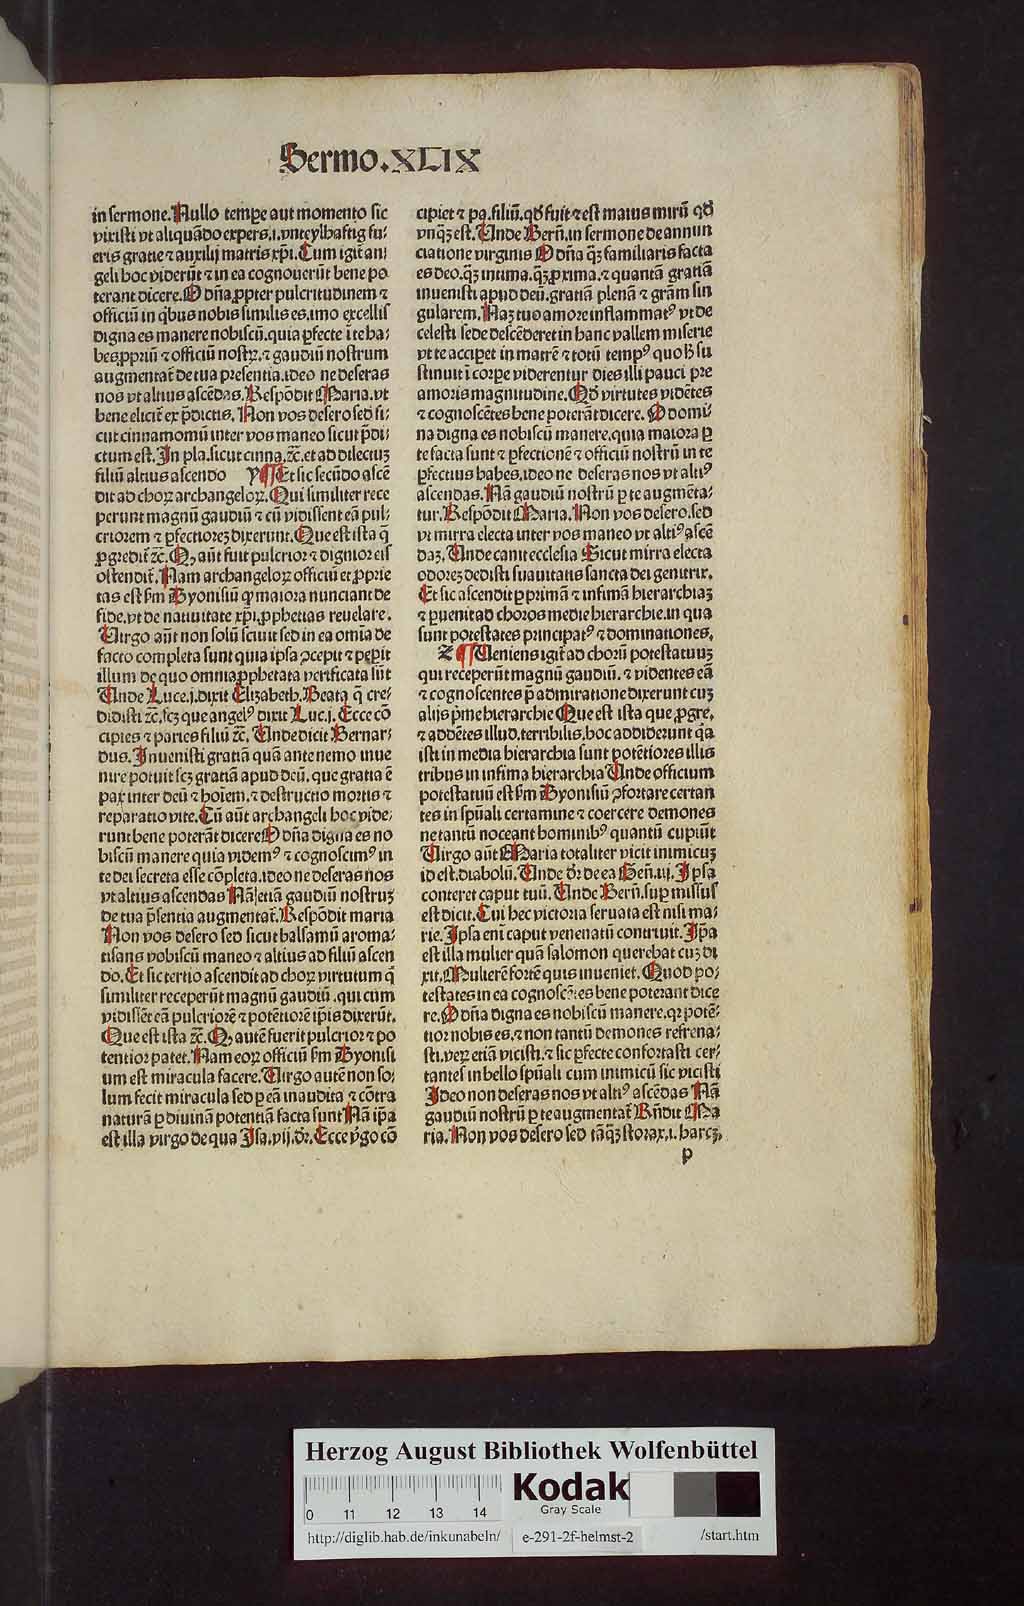 Sermo.XLIX
in sermone. Nullo tempore aut momento sic
vixisti vt aliquãdo expers.i.vnteylhaftig fu⸗
eris gratie ⁊ auxilij matris xp̃i. Cum igit̃ an⸗
geli hoc viderũt ⁊ in ea cognouerũt bene po
terant dicere. O dña ꝓpter pulcritudinem ⁊
officiũ in q̃bus nobis similis es.imo excellis
digna es manere nobiscũ.quia ꝑfecte ĩ te ha⸗
bes ꝓpriũ ⁊ officiũ nostrꝝ.⁊ gaudiũ nostrum
augmentat̃ de tua presentia.ideo ne deseras
nos vt altius ascẽdas. Respõdit Maria.vt
bene elicit̃ ex p̃dictis. Non vos desero sed si⸗
cut cinnamomũ inter vos maneo sicut p̃di⸗
ctum est. In pla.sicut cinna.⁊c̃.et ad dilectuꝫ
filiũ altius ascendo Y ¶ Et sic secũdo ascẽ
dit ad choꝝ archangeloꝝ. Qui similiter rece
perunt magnũ gaudiũ ⁊ cũ vidissent eã pul⸗
criorem ⁊ ꝑfectioreꝫ dixerunt. Que est ista q̃
ꝓgredit̃ ⁊c̃. Qꝫ aũt fuit pulcrior ⁊ dignior eis
ostendit̃. Nam archangeloꝝ officiũ et ꝓprie
tas est ẜm Dyonisiũ q̃ maiora nunciant de
fide.vt de natiuitate xp̃i.ꝓphetias reuelare.
Virgo aũt non solũ sciuit sed in ea om̃ia de
facto completa sunt quia ipsa ꝯcepit ⁊ peꝑit
illum de quo omnia ꝓphetata verificata sũt
Unde Luce.j.dixit Elizabeth. Beata q̃ cre⸗
didisti ⁊c̃.scꝫ que angelꝰ dixit Luc.j. Ecce cõ
cipies ⁊ paries filiũ ⁊c̃. Unde dicit Bernar⸗
dus. Inuenisti gratiã quã ante nemo inue
nire potuit scꝫ gratiã apud deũ.que gratia ẽ
pax inter deũ ⁊ hoĩem.⁊ destructio mortis ⁊
reparatio vite. Cũ aũt archangeli hoc vide⸗
runt bene poterãt dicere O dña digna es no
biscũ manere quia videmꝰ ⁊ cognoscimꝰ in
te dei secreta esse cõpleta.ideo ne deseras nos
vt altius ascendas Nã ⁊etiã gaudiũ nostruꝫ
de tua p̃sentia augmentat̃. Respõdit maria
Non vos desero sed sicut balsamũ aroma⸗
tisans vobiscũ maneo ⁊ altius ad filiũ ascen
do. Et sic tertio ascendit ad choꝝ virtutum q̃
similiter receperũt magnũ gaudiũ.qui cum
vidissẽt eã pulciorẽ ⁊ potẽtiorẽ ip̃is dixerũt.
Que est ista ⁊c̃. Qꝫ autẽ fuerit pulcrior ⁊ po
tentior patet. Nam eoꝝ officiũ ẜm Dyonisi
um est miracula facere. Virgo autẽ non so⸗
lum fecit miracula sed ꝑ eã inaudita ⁊ cõtra
naturã ꝑ diuinã potentiã facta sunt Nã ip̃a
est illa virgo de qua Isa.vij.dr̃. Ecce v̓go cõ
cipiet ⁊ pa.filiũ.qđ fuit ⁊ est maius mirũ qđ
vnq̃ꝫ est. Unde Berñ.in sermone de annun
ciatione virginis O dña q̃ꝫ familiaris facta
es deo.q̃ꝫ intima.q̃ꝫ ꝓxima.⁊ quantã gratiã
inuenisti apud deũ.gratiã plenã ⁊ grãm sin
gularem. Naꝫ tuo amore inflammatꝰ vt de
celesti sede descẽderet in hanc vallem miserie
vt te acciperet in matrẽ ⁊ totũ tempꝰ quoꝫ su
stinuit ĩ corpe viderentur dies illi pauci pre
amoris magnitudine. Qđ virtutes vidẽtes
⁊ cognoscẽtes bene poterãt dicere. O domi⸗
na digna es nobiscũ manere.quia maiora ꝑ
te facta sunt ⁊ ꝑfectionẽ ⁊ officiũ nostrũ in te
ꝑfectius habes.ideo ne deseras nos vt altiꝰ
ascendas. Nã gaudiũ nostrũ ꝑ te augmẽta⸗
tur. Respõdit Maria. Non vos desero.sed
vt mirra electa inter vos maneo vt altiꝰ ascẽ
daꝫ. Unde canit ecclesia Sicut mirra electa
odoreꝫ dedisti suauitatis sancta dei genitrix.
Et sic ascendit ꝑ primã ⁊ infimã hierarchiaꝫ
⁊ ꝑuenit ad choros medie hierarchie.in qua
sunt potestates principatꝰ ⁊ dominationes.
Z ¶ Ueniens igit̃ ad chorũ potestatuuꝫ
qui receperũt magnũ gaudiũ.⁊ videntes eã
⁊ cognoscentes p̃ admiratione dixerunt cuꝫ
alijs p̃me hierarchie Que est ista que ꝓgre.
⁊ addẽtes illud.terribilis.hoc addiderunt q̃a
isti in media hierarchia sunt potẽtiores illis
tribus in infima hierarchia Unde officium
potestatuũ est ẜm Dyonisiũ ꝯfortare certan
tes in sp̃uali certamine ⁊ coercere demones
ne tantũ noceant hominibꝰ quantũ cupiũt
Virgo aũt Maria totaliter vicit inimicuꝫ
id est.diabolũ. Unde dr̃ de ea Geñ.iij. Ipsa
conteret caput tuũ. Unde Berñ.suꝑ missus
est dicit. Cui hec victoria seruata est nisi ma⸗
rie. Ipsa enĩ caput venenatũ contriuit. Ip̃a
est illa mulier quã salomon querebat cuꝫ di
xit. Mulierẽ fortẽ quis inueniet. Quod po⸗
testates in ea cognoscẽtes bene poterant dice
re. O dña digna es nobiscũ manere.qꝛ potẽ⸗
tior nobis es.⁊ non tantũ demones refrena⸗
sti.veꝝ etiã vicisti.⁊ sic ꝑfecte confortasti cer⸗
tantes in bello sp̃uali cum inimicũ sic vicisti
Ideo non deseras nos vt altiꝰ ascẽdas Nã
gaudiũ nostrũ ꝑ te augmentat̃ Rñdit Ma
ria. Non vos desero sed tãq̃ꝫ storax.i.harcꝫ.
p
Herzog August Bibliothek Wolfenbüttel
0 11 12 13 14
Kodak
Gray Scale
http://diglib.hab.de/inkunabeln/ e-291-2f-helmst-2 /start.htm